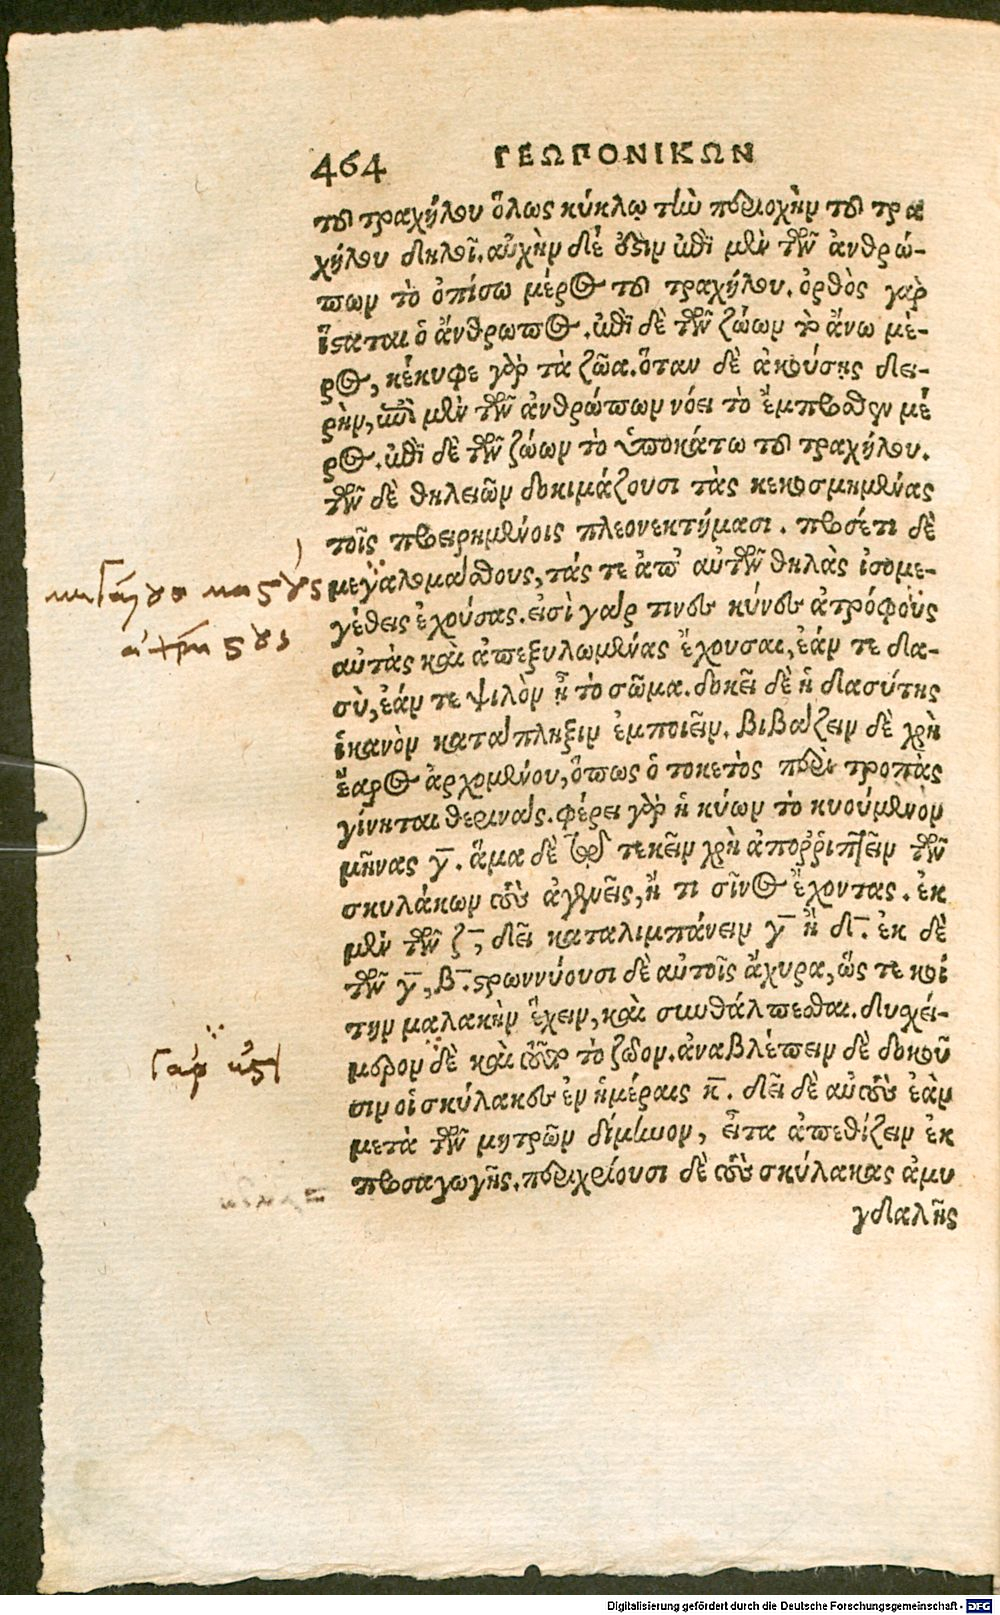 464 ΓΕΩΠΟΝΙΚΩΝ
τοῦ τραχήλου ὅλως κύκλῳ τὴν περιοχὴν τοῦ τρα
χήλου δηλοῖ. αὐχὴν δέ ἐστιν ἐπὶ μὲν τῶν ἀνθρώ-
πων τὸ ὀπίσω μέρος τοῦ τραχήλου. ὀρθὸς γὰρ
ἵσαται ὁ ἄνθρωπος. ἐπὶ δὲ τῶν ζώων τὸ ἄνω μέ-
ρος, κέκυφε γὰρ τὰ ζῶα. ὅταν δὲ ἀκούσῃς δει-
ρὴν, ἐπὶ μὲν τῶν ἀνθρώπων νόει τὸ ἔμπροσθεν μέ
ρος. ἐπὶ δὲ τῶν ζώων τὸ ὑποκάτω τοῦ τραχήλου.
τῶν δὲ θηλειῶν δοκιμάζουσι τὰς κεκοσμημένας
τοῖς προειρημένοις πλεονεκτήμασι. προσέτι δὲ
μεγαλομάσθους, τάς τε ἀπ' αὐτῶν θηλὰς ἰσομε-
γέθεις ἐχούσας. εἰσὶ γάρ τινες κύνες ἀτρόφους
αὐτὰς καὶ ἀπεξυλωμένας ἔχουσαι, ἐάν τε δα-
σὺ, ἐάν τε ψιλὸν ᾖ τὸ σῶμα. δοκεῖ δὲ ἡ δασύτης
ἱκανὸν κατάπληξιν ἐμποιεῖν. βιβάζειν δὲ χρὴ
ἔαρος ἀρχομένου, ὅπως ὁ τοκετὸς περὶ τροπὰς
γίνηται θερινάς. φέρει γὰρ ἡ κύων τὸ κυούμενον
μῆνας γ̄. ἅμα δὲ τῷ τεκεῖν χρὴ ἀποῤῥιπτεῖν τῶν
σκυλάκων τοὺς ἀγεννεῖς, ἤ τι σῖνος ἔχοντας. ἐκ
μὲν τῶν ζ̄, δεῖ καταλιμπάνειν γ̄ ἢ δ̄. ἐκ δὲ
τῶν γ̄, β̄. στρωννύουσι δὲ αὐτοῖς ἄχυρα, ὥς τε κοί
την μαλακὴν ἔχειν, καὶ συνθάλπεσθαι. δυσχεί-
μερον δὲ καὶ τοῦτο τὸ ζῶον. ἀναβλέπειν δὲ δοκοῦ
σιν οἱ σκύλακες ἐν ἡμέραις κ̄. δεῖ δὲ αὐτοὺς ἐὰν
μετὰ τῶν μητρῶν δίμηνον, εἶτα ἀπεθίζειν ἐκ
προσαγωγῆς. περιχρίουσι δὲ τοὺς σκύλακας ἀμυ
γδαλῆς
Digitalisierung gefördert durch die Deutsche Forschungsgemeinschaft - DFG